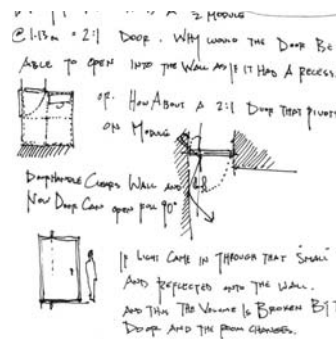 2 MODULE
@ 1.13m = 2:1 DOOR. WHY WOULD THE DOOR BE
ABLE TO OPEN INTO THE WALL AS IF IT HAD A RECESS.
OR. HOW ABOUT A 2:1 DOOR THAT PIVOTS
ON MODULE
DOORHANDLE CLEARS WALL AND
NOW DOOR CAN OPEN FULL 90°
IF LIGHT CAME IN THROUGH THAT "SMALL
AND REFLECTED ONTO THE WALL.
AND THUS THE VOLUME IS BROKEN BY T
DOOR AND THE ROOM CHANGES.